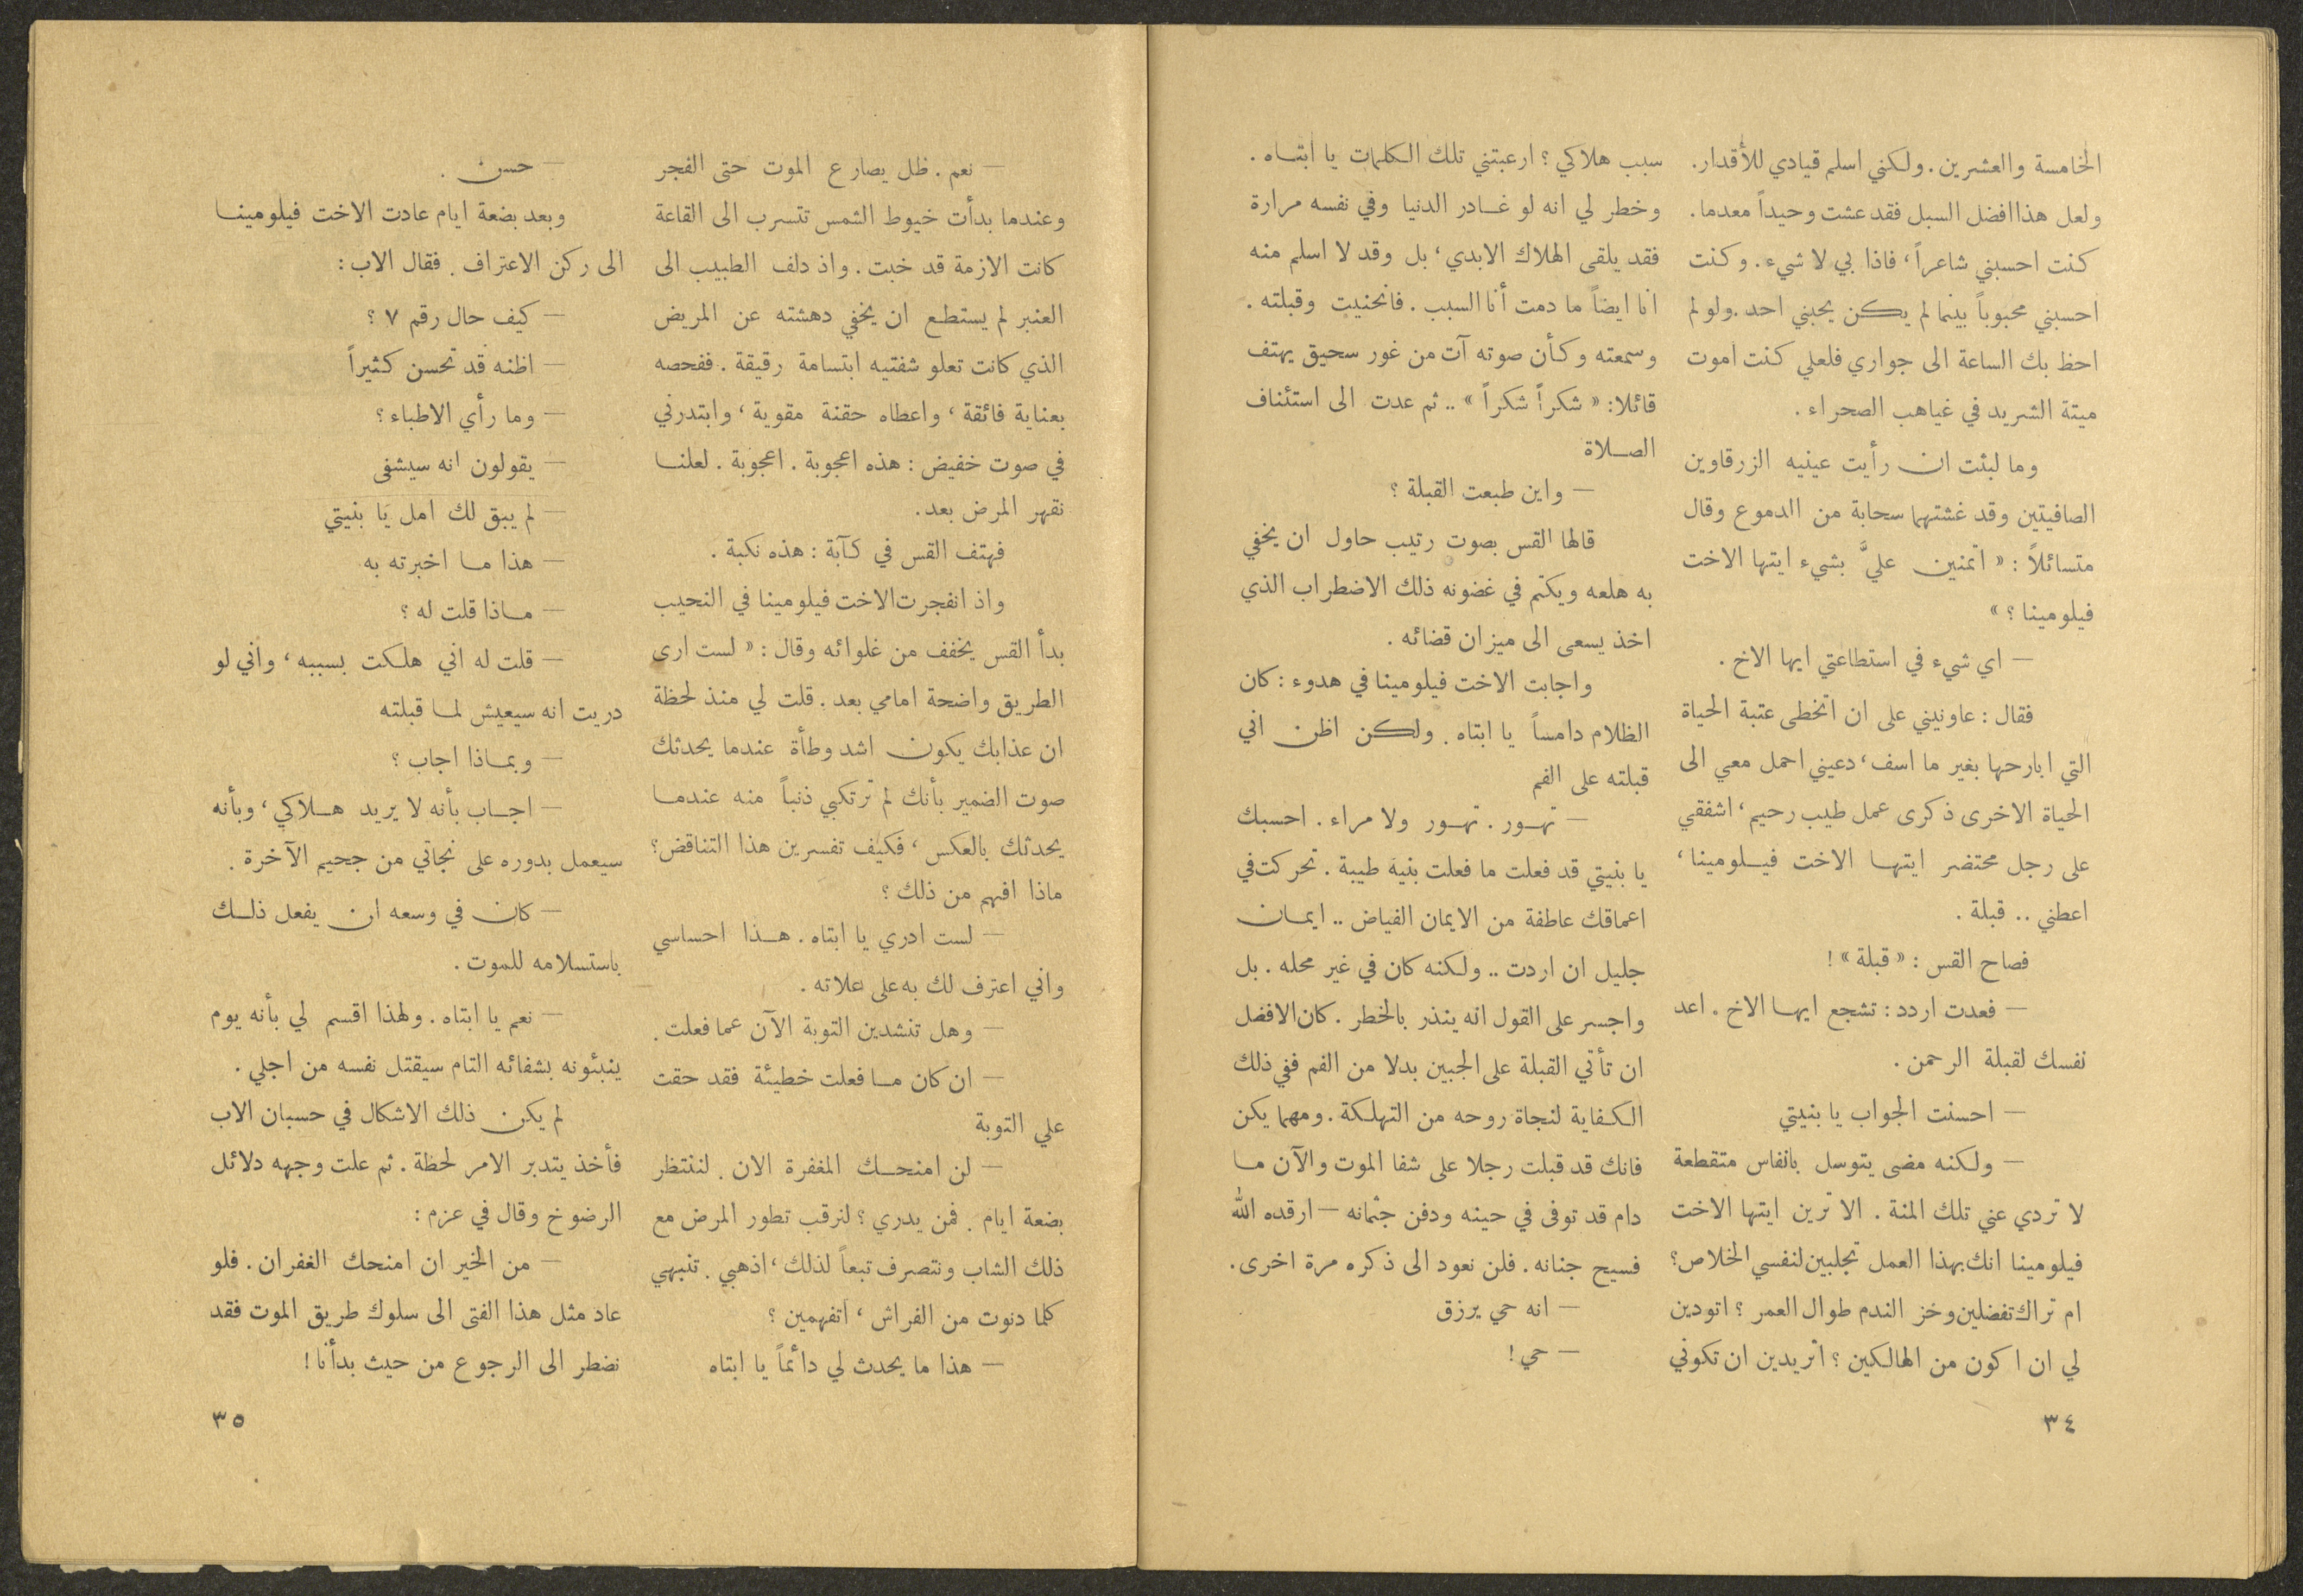 الخامسة والعشرين . ولكني اسلم قيادي للأقدار .
ولعل هذا افضل السبل فقد عشت وحيداً معدما .
كنت احسبني شاعراً ، فاذا بي لا شيء . وكنت
احسبني محبوباً بينما لم يكن يحبني احد . ولو لم
احظ بك الساعة الى جواري فلعلي كنت اموت
ميتة الشريد في غياهب الصحراء .
وما لبثت ان رأيت عينيه الزرقاوين
الصافيتين وقد غشتهما سحابة من الدموع وقال
متسائلاً : « اتمنين عليَّ بشيء ايتها الاخت
فيلومينا ؟ »
— اي شيء في استطاعتي ايها الاخ .
فقال : عاونيني على ان اتخطى عتبة الحياة
التي ابارحها بغير ما اسف ، دعيني احمل معي الى
الحياة الاخرى ذكرى عمل طيب رحيم ، اشفقي
على رجل محتضر ايتها الاخت فيلومينا ،
اعطني .. قبلة .
فصاح القس : « قبلة » !
— فعدت اردد : تشجع ايها الاخ . اعد
نفسك لقبلة الرحمن .
— احسنت الجواب يا بنيتي
— ولكنه مضى يتوسل بانفاس متقطعة
لا تردي عني تلك المنة . الا ترين ايتها الاخت
فيلومينا انك بهذا العمل تجلبين لنفسي الخلاص ؟
ام تراك تفضلين وخز الندم طوال العمر ؟ اتودين
لي ان اكون من الهالكين ؟ اتريدين ان تكوني
سبب هلاكي ؟ ارعبتني تلك الكلمات يا ابتاه .
وخطر لي انه لو غادر الدنيا وفي نفسه مرارة
فقد يلقى الهلاك الابدي ، بل وقد لا اسلم منه
انا ايضاً ما دمت أنا السبب . فانحنيت وقبلته .
وسمعته وكأن صوته آت من غور سحيق يهتف
قائلا : « شكراً شكراً » .. ثم عدت الى استئناف
الصلاة
— واين طبعت القبلة ؟
قالها القس بصوت رتيب حاول ان يخفي
به هلعه ويكتم في غضونه ذلك الاضطراب الذي
اخذ يسعى الى ميزان قضائه .
واجابت الاخت فيلومينا في هدوء : كان
الظلام دامساً يا ابتاه . ولكن اظن اني
قبلته على الفم
— تهور . تهور ولا مراء . احسبك
يا بنيتي قد فعلت ما فعلت بنية طيبة . تحركت في
اعماقك عاطفة من الايمان الفياض .. ايمان
جليل ان اردت .. ولكنه كان في غير محله . بل
واجسر على القول انه ينذر بالخطر . كان الافضل
ان تأتي القبلة على الجبين بدلا من الفم ففي ذلك
الكفاية لنجاة روحه من التهلكة . ومهما يكن
فانك قد قبلت رجلا على شفا الموت والآن ما
دام قد توفى في حينه ودفن جثمانه — ارقده الله
فسيح جنانه . فلن نعود الى ذكره مرة اخرى .
— انه حي يرزق
— حي !
٣٤
— نعم . ظل يصارع الموت حتى الفجر
وعندما بدأت خيوط الشمس تتسرب الى القاعة
كانت الازمة قد خبت . واذ دلف الطبيب الى
العنبر لم يستطع ان يخفي دهشته عن المريض
الذي كانت تعلو شفتيه ابتسامة رقيقة . ففحصه
بعناية فائقة ، واعطاه حقنة مقوية ، وابتدرني
في صوت خفيض : هذه اعجوبة . اعجوبة . لعلنا
نقهر المرض بعد .
فهتف القس في كآبة : هذه نكبة .
واذ انفجرت الاخت فيلومينا في النحيب
بدأ القس يخفف من غلوائه وقال : « لست ارى
الطريق واضحة امامي بعد . قلت لي منذ لحظة
ان عذابك يكون اشد وطأة عندما يحدثك
صوت الضمير بأنك لم ترتكبي ذنباً منه عندما
يحدثك بالعكس ، فكيف تفسرين هذا التناقض ؟
ماذا افهم من ذلك ؟
— لست ادري يا ابتاه . هذا احساسي
واني اعترف لك به على علاته .
— وهل تنشدين التوبة الآن عما فعلت .
— ان كان ما فعلت خطيئة فقد حقت
علي التوبة
— لن امنحك المغفرة الان . لننتظر
بضعة ايام . فمن يدري ؟ لنرقب تطور المرض مع
ذلك الشاب ونتصرف تبعاً لذلك ، اذهبي . تنبهي
كلما دنوت من الفراش ، اتفهمين ؟
— هذا ما يحدث لي دائماً يا ابتاه
— حسن .
وبعد بضعة ايام عادت الاخت فيلومينا
الى ركن الاعتراف . فقال الاب :
— كيف حال رقم ٧ ؟
— اظنه قد تحسن كثيراً
— وما رأي الاطباء ؟
— يقولون انه سيشفى
— لم يبق لك امل يا بنيتي
— هذا ما اخبرته به
— ماذا قلت له ؟
— قلت له اني هلكت بسببه ، واني لو
دريت انه سيعيش لما قبلته
— وبماذا اجاب ؟
— اجاب بأنه لا يريد هلاكي ، وبأنه
سيعمل بدوره على نجاتي من جحيم الآخرة .
— كان في وسعه ان يفعل ذلك
باستسلامه للموت .
— نعم يا ابتاه . ولهذا اقسم لي بأنه يوم
ينبئونه بشفائه التام سيقتل نفسه من اجلي .
لم يكن ذلك الاشكال في حسبان الاب
فأخذ يتدبر الامر لحظة . ثم علت وجهه دلائل
الرضوخ وقال في عزم :
— من الخير ان امنحك الغفران . فلو
عاد مثل هذا الفتى الى سلوك طريق الموت فقد
نضطر الى الرجوع من حيث بدأنا !
٣٥